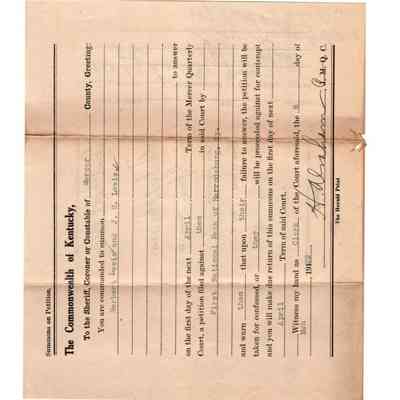 Summons on Petition.
The Commonwealth of Kentucky,
To the Sheriff, Coroner or Constable of Mercer County, Greeting:
You are commanded to summon
Herbert and J. H. Lewis
to answer
on the first day of the next April Term of the Mercer Quarterly
Court, a petition filed against them in said Court by
First National Bank of Harrodsburg, Ky.
and warn them that upon their failure to answer, the petition will be
taken for confessed, or they will be proceeded against for contempt
and you will make due return of this summons on the first day of next
April Term of said Court.
Witness my hand as Clerk of the Court aforesaid, the 8 day of
191
J. M. Q. C.
The Herald Print